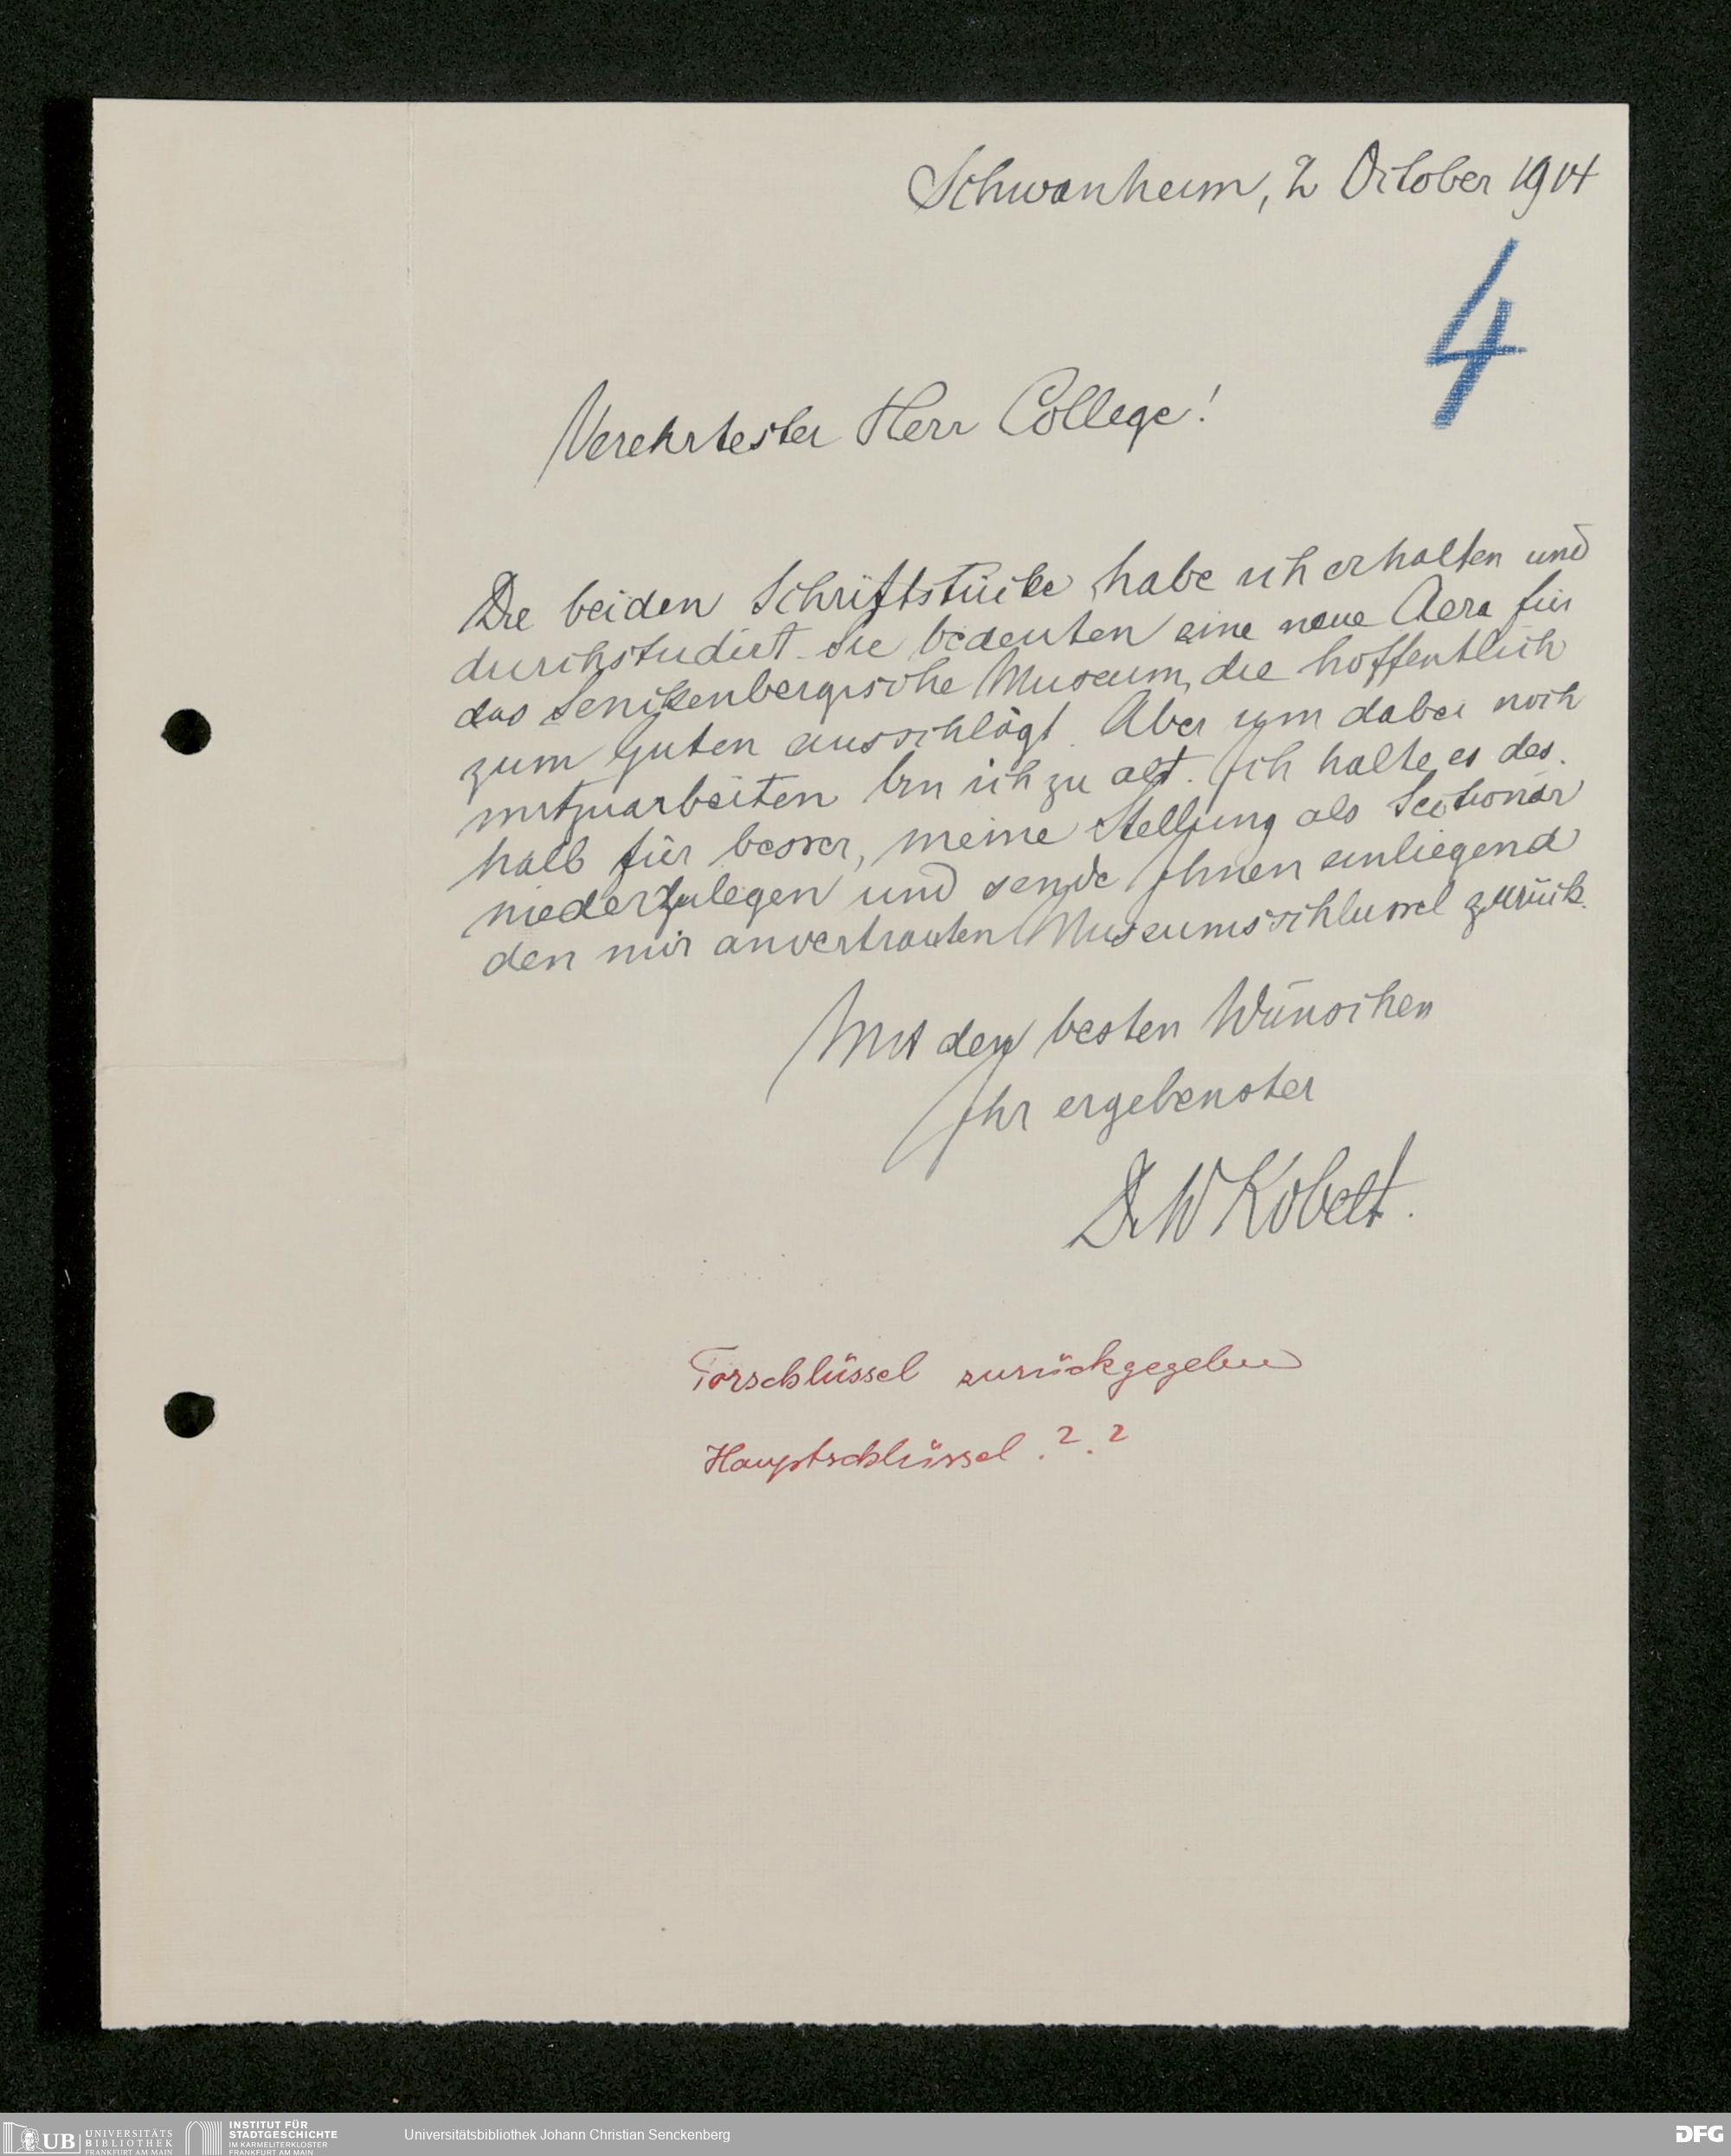 Schwanheim, 2 October 1914
4
Verehrtester Herr College!
Die beiden Schriftstücke habe ich erhalten und
durchstudirt. Sie bedeuten eine neue Aera für
das Senckenbergische Museum, die hoffentlich
zum Guten ausschlägt. Aber um dabei noch
mitzuarbeiten bin ich zu alt. Ich halte es des-
halb für besser, meine Stellung als Sectionär
niederzulegen und sende Ihnen einliegend
den mir anvertrauten Museumsschlussel zurück.
Mit den besten Wünschen
Ihr ergebenster
Dr W Kobelt.
Torschlüssel zurückgegeben
Hauptschlüssel ? ?
UB UNIVERSITÄTS
BIBLIOTHEK
FRANKFURT AM MAIN
INSTITUT FÜR
STADTGESCHICHTE
IM KARMELITERKLOSTER
FRANKFURT AM MAIN
Universitätsbibliothek Johann Christian Senckenberg
DFG